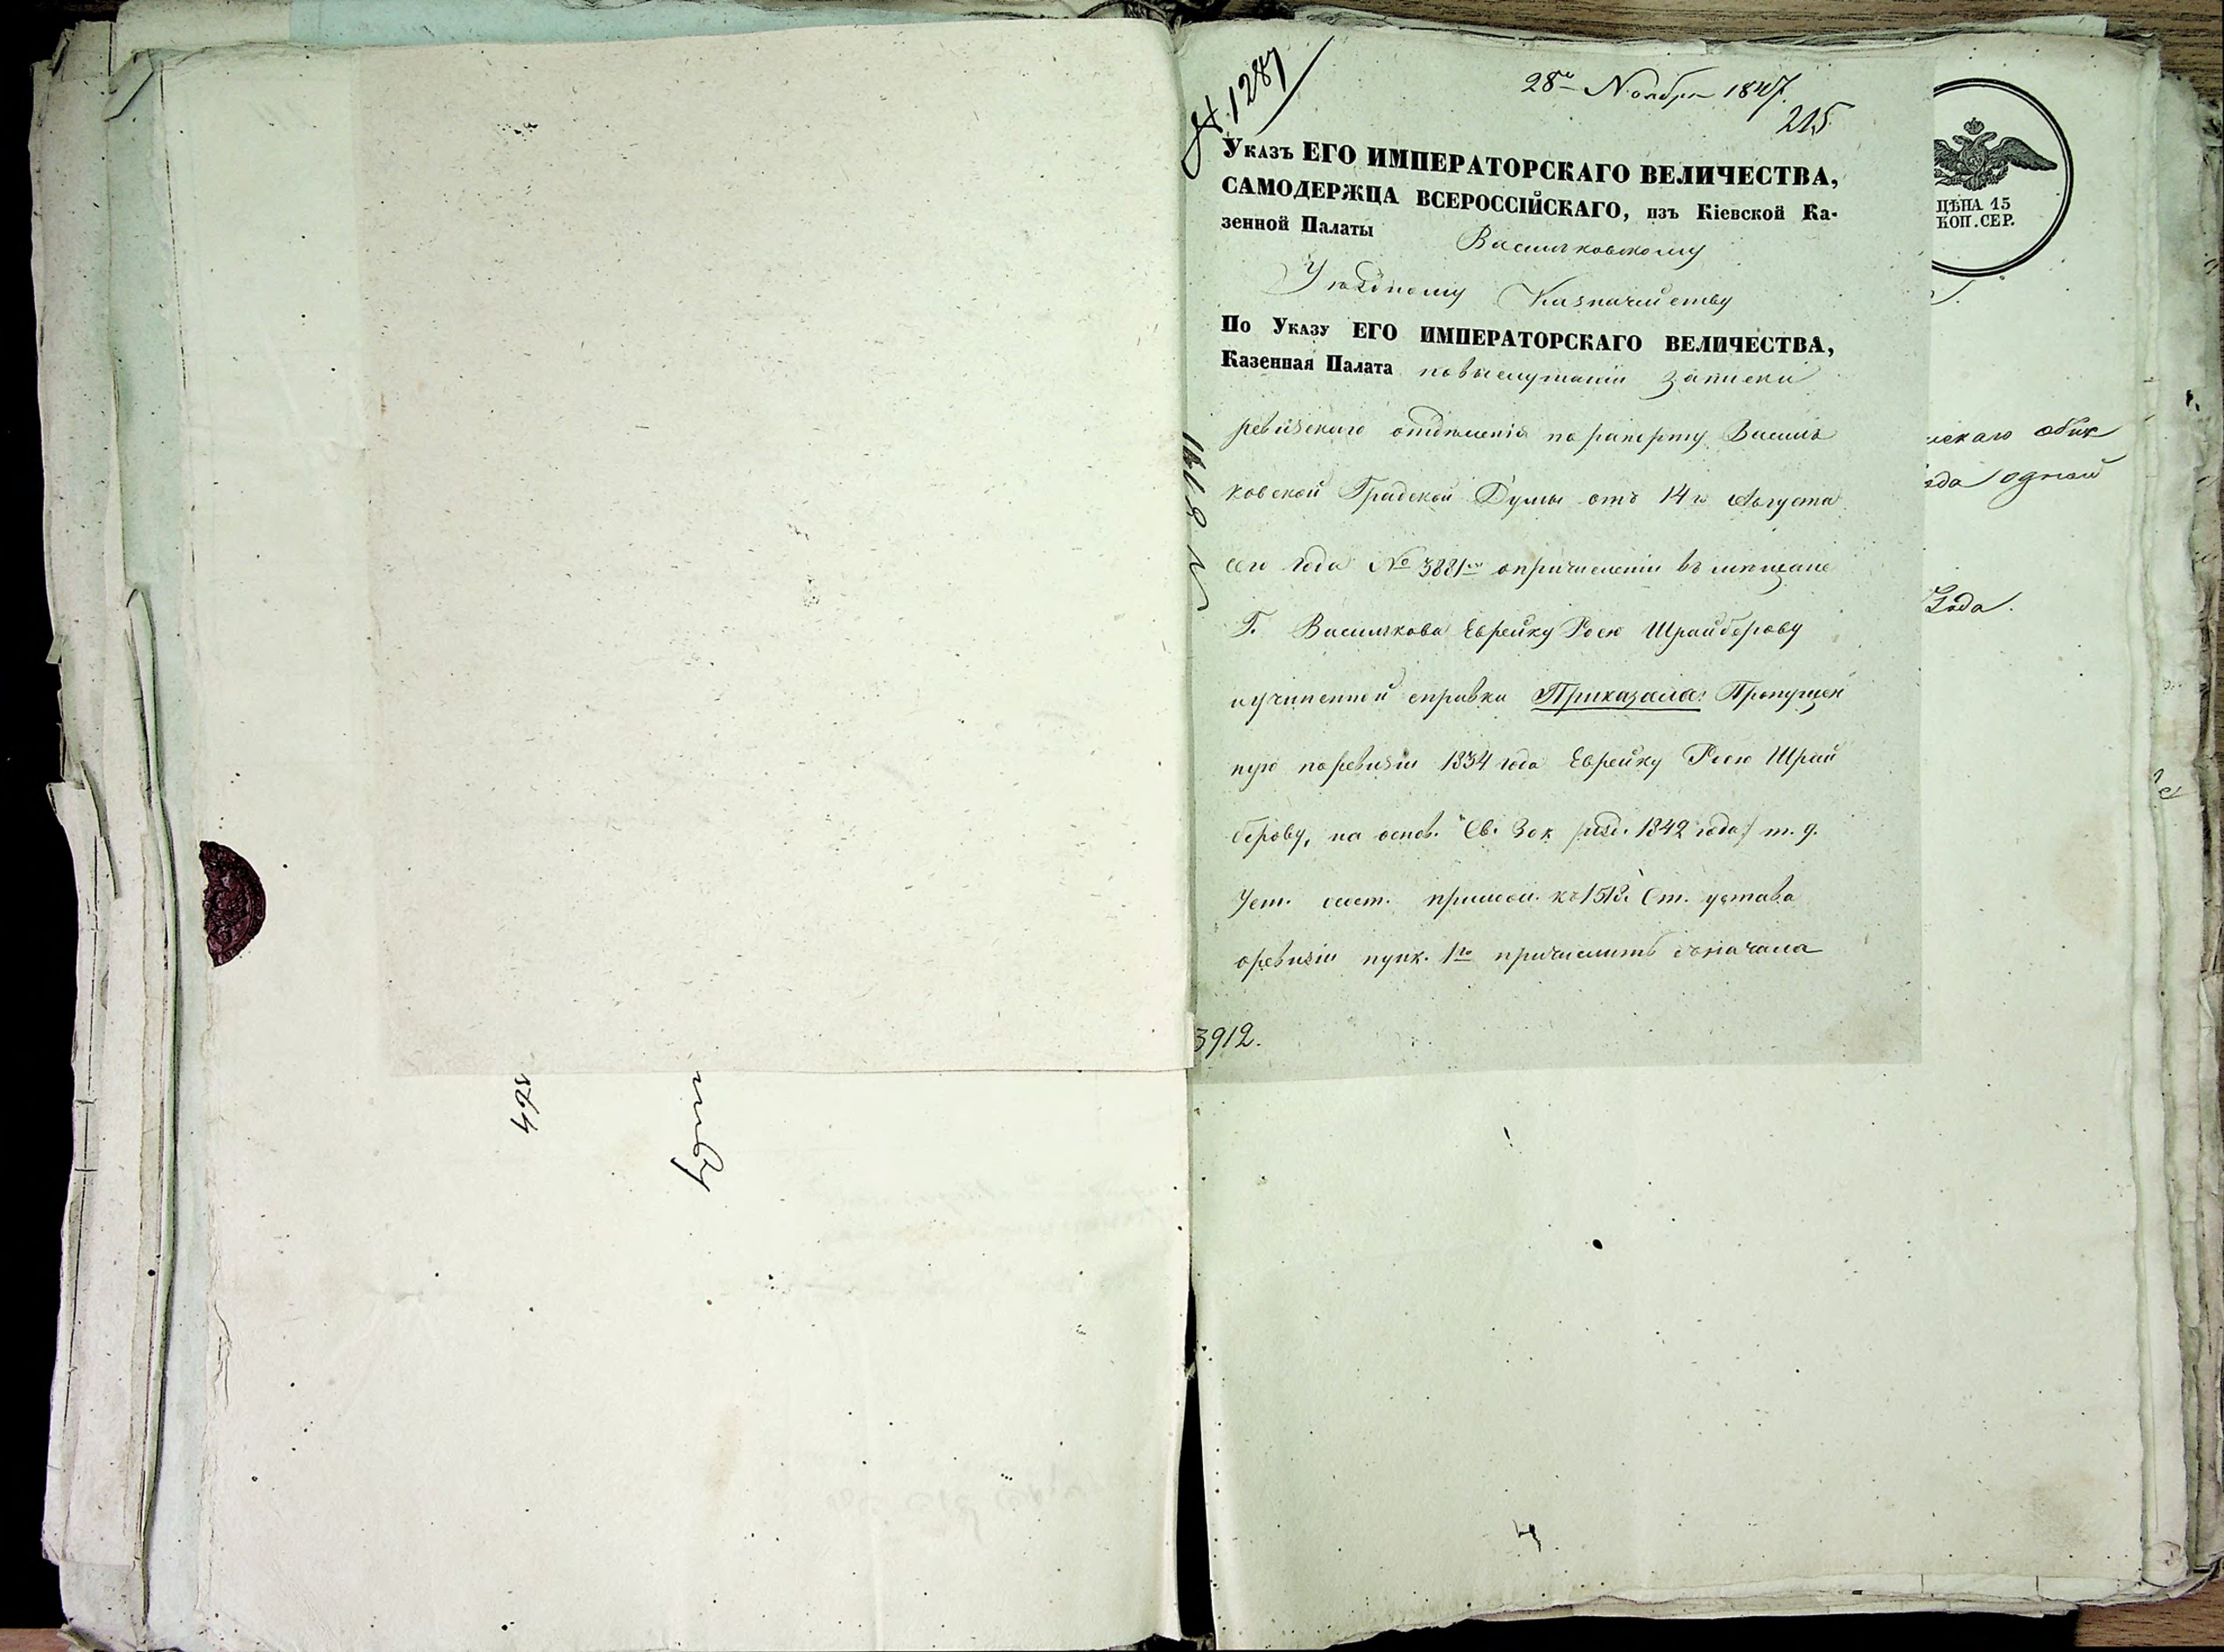 № 1287
28го Ноября 1847.
215
Указъ ЕГО ИМПЕРАТОРСКАГО ВЕЛИЧЕСТВА,
САМОДЕРЖЦА ВСЕРОССІЙСКАГО, изъ Кіевской Ка-
зенной Палаты Васильковскому
Уѣздному Казначейству
По Указу ЕГО ИМПЕРАТОРСКАГО ВЕЛИЧЕСТВА,
Казенная Палата по выслушаніи записки
ревизскаго отдѣленія по рапорту Василь
ковской Градской Думы отъ 14го Августа
сего года № 3881 о причисленіи въ мѣщане
Г. Василькова Еврейку Росю Шрайберову
и учиненной справки Приказала: Пропущен
ную по ревизіи 1834 года Еврейку Росю Шрай
берову, на основ. Св. Зак. изд. 1842 года т. 9.
Уст. сост. прилож. къ 1512 Ст. устава
о ревизіи пунк. 1го причислить съ начала
3912.
ЦѢНА 15
КОП. СЕР.
скаго обик
ода одной
Года.